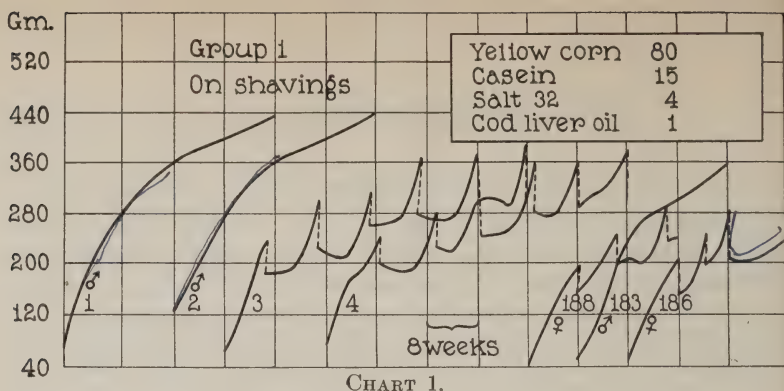 Gm.
520
440
360
280
200
120
40
Group 1
On shavings
Yellow corn 80
Casein 15
Salt 32 4
Cod liver oil 1
♂ 1
♂ 2
3
4
♀ 188
♂ 183
♀ 186
8 weeks
CHART 1.